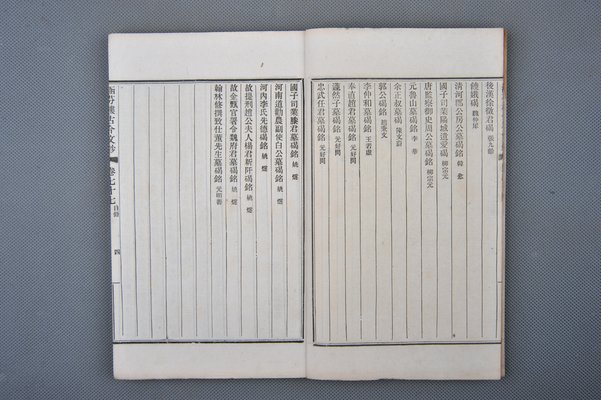 後漢徐徵君碣 張九齡
饒娥碣 魏仲犀
清河郡公房公墓碣銘 韓愈
國子司業陽城遺愛碣 柳宗元
唐監察御史周公碣銘 柳宗元
元魯山墓碣銘 李華
余正叔墓碣 陳文蔚
郭公碣銘 趙秉文
李仲和墓碣銘 王若虛
奉直趙君墓碣銘 元好問
蘧然子墓碣銘 元好問
忠武任君墓碣銘 元好問
國子司業滕君墓碣銘 姚燧
河南道勸農副使白公墓碣銘 姚燧
河內李氏先德碣銘 姚燧
故提刑趙公夫人楊君新阡碣銘 姚燧
故金甄官署令魏府君墓碣銘 姚燧
翰林修撰致仕董先生墓碣銘 元明善
涵芬樓古今文鈔 卷七十七 目錄 四